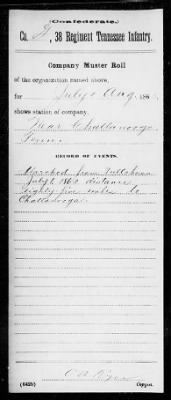 (Confederate.)
Co. G, 38 Regiment Tennessee Infantry.
Company Muster Roll
of the organization named above,
for July & Aug, 186
shows station of company,
Near Chattanooga
Tenn.
RECORD OF EVENTS.
Marched from Tullahoma
July 1, 1863 distance
eighty five miles to
Chattanooga.
(642b) Copyist.